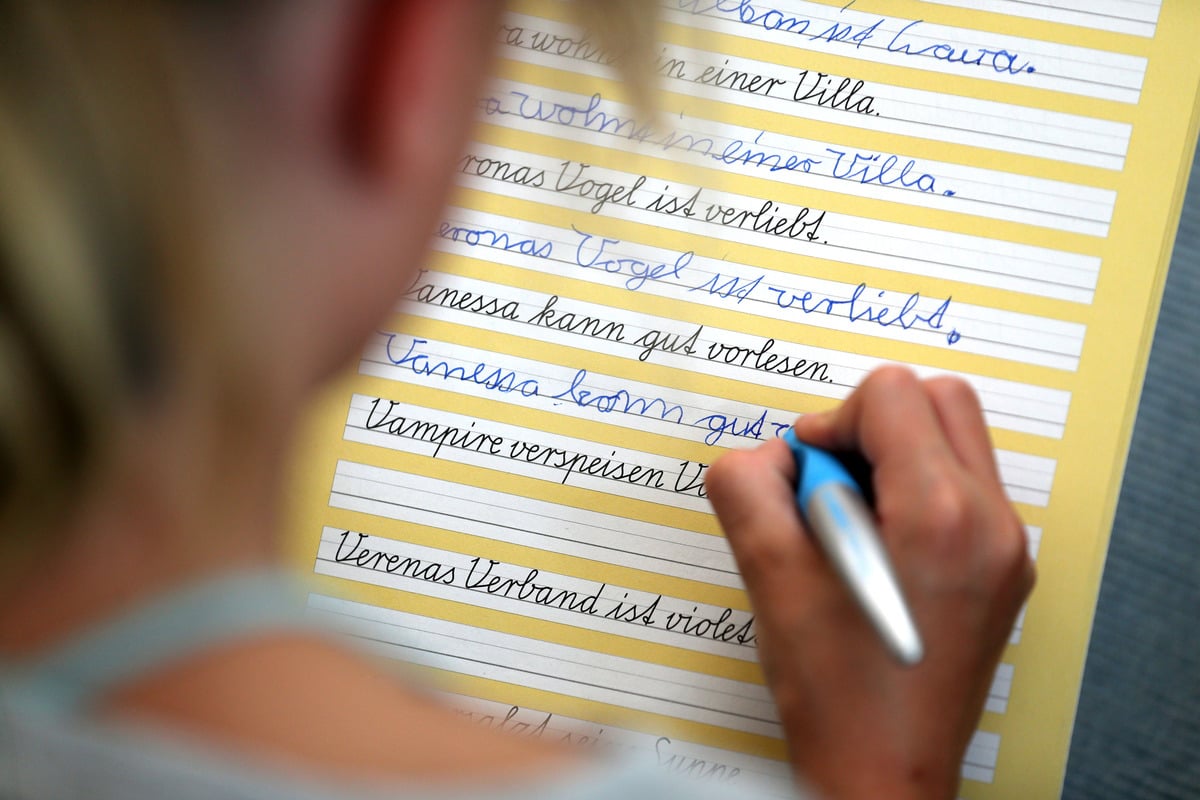 ist Laura.
in einer Villa.
wohnt in einer Villa.
ronas Vogel ist verliebt.
eronas Vogel ist verliebt.
Vanessa kann gut vorlesen.
Vanessa kann gut
Vampire verspeisen
Verenas Verband ist violett.